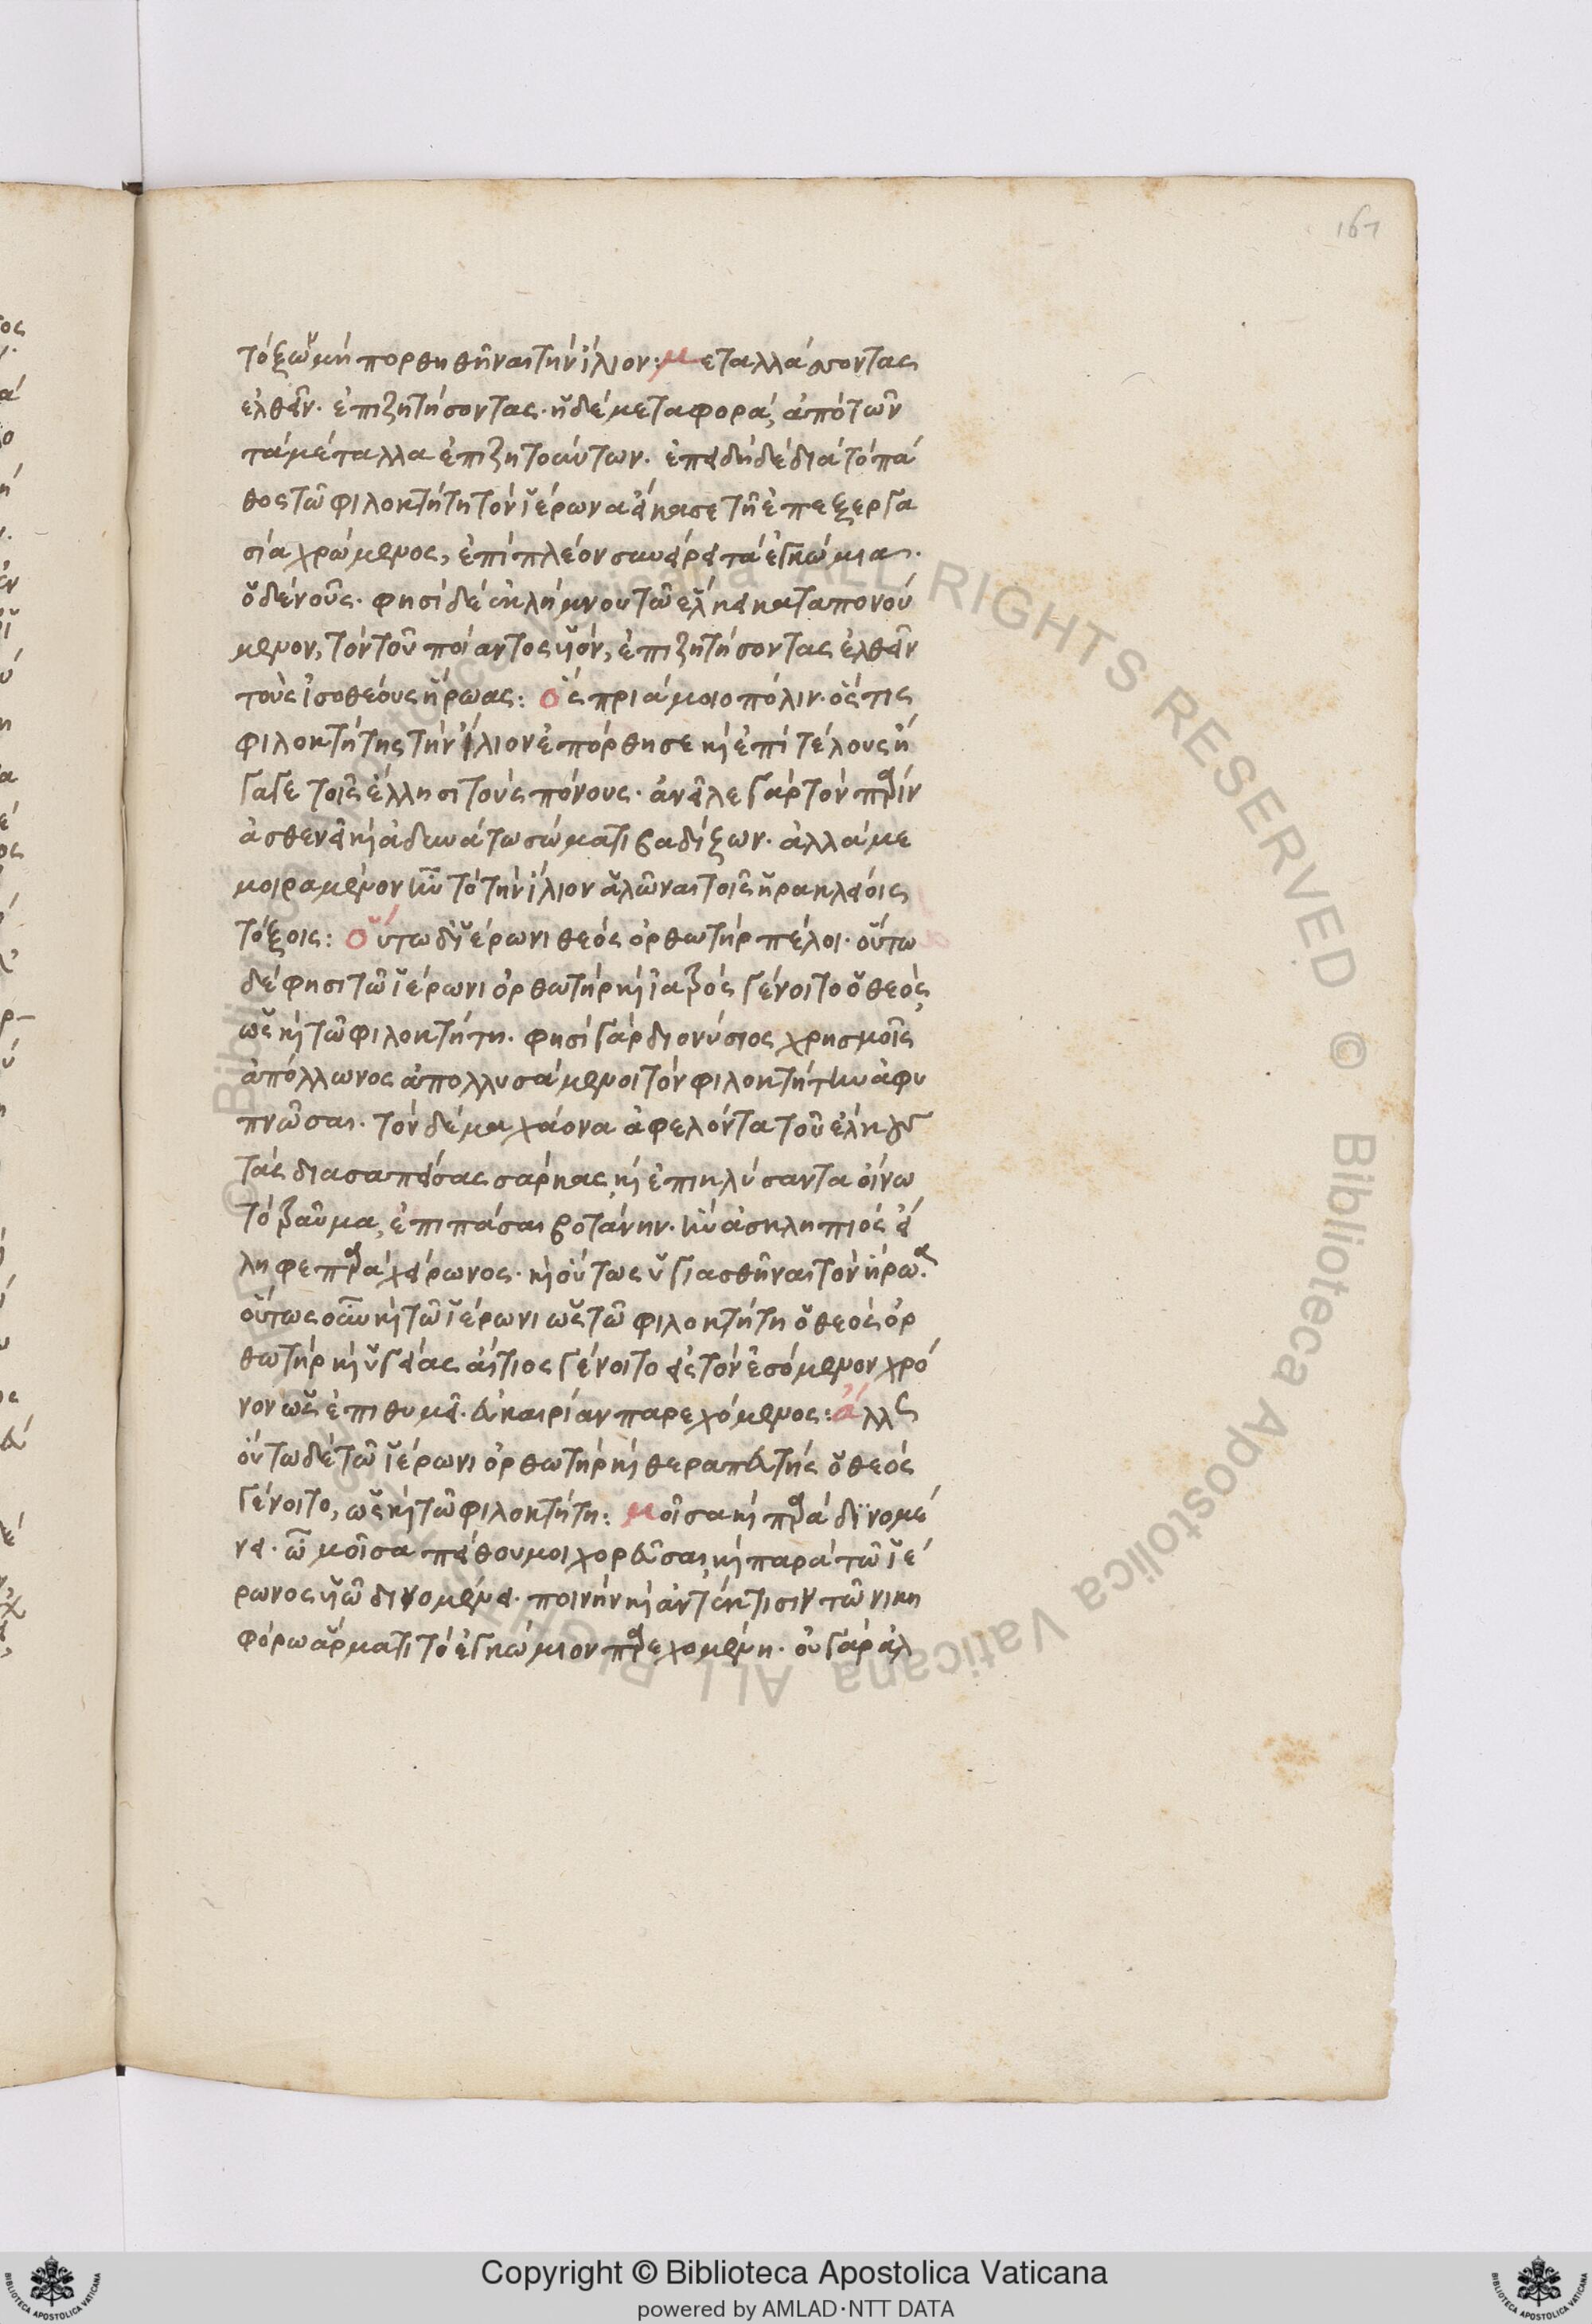 161
τόξων μὴ πορθηθῆναι τὴν ἴλιον: μεταλλάσοντας
ἐλθεῖν· ἐπιζητήσοντας· ἡ δὲ μεταφορὰ, ἀπὸ τῶν
τὰ μέταλλα ἐπιζητούντων· ἐπειδὴ δὲ διὰ τὸ πά
θος τῶ φιλοκτήτη τὸν ἱέρωνα εἴκασε τῆ ἐπεξεργα
σία χρώμενος, ἐπὶ πλέον συναίρει τὰ ἐγκώμια.
ὁ δὲ νοῦς· φησὶ δὲ ἐκ λήμνου τῶ ἕλκει καταπονού
μενον, τὸν τοῦ ποίαντος υἱόν, ἐπιζητήσοντας ἐλθεῖν
τοὺς ἰσοθέους ἥρωας: ὃς πριάμοιο πόλιν· ὅς τις
φιλοκτήτης τὴν ἴλιον ἐπόρθησε καὶ ἐπὶ τέλους ἤ
γαγε τοῖς ἕλλησι τοὺς πόνους· ἀνεῖλε γὰρ τὸν πάριν
ἀσθενεῖ καὶ ἀδυνάτω σώματι βαδίζων· ἀλλὰ με
μοιραμένον ἦν τὸ τὴν ἴλιον ἁλῶναι τοῖς ἡρακλείοις
τόξοις: Οὕτω δ' ἱέρωνι θεὸς ὀρθωτὴρ πέλοι· οὕτω
δέ φησι τῶ ἱέρωνι ὀρθωτὴρ καὶ ἰατρὸς γένοιτο ὁ θεὸς,
ὡς καὶ τῶ φιλοκτήτη· φησὶ γὰρ διονύσιος χρησμοῖς
ἀπόλλωνος ἀπολλυσάμενοι τὸν φιλοκτήτην ἀφυ
πνῶσαι· τὸν δὲ μαχάονα ἀφελόντα τοῦ ἕλκους
τὰς διασαπείσας σάρκας, καὶ ἐπικλύσαντα οἴνω
τὸ τραῦμα, ἐπιπάσαι βοτάνην· ἣν ἀσκληπιὸς εἴ
ληφε παρὰ χείρωνος· καὶ οὕτως ὑγιασθῆναι τὸν ἥρωα.
οὕτως οὖν καὶ τῶ ἱέρωνι ὡς τῶ φιλοκτήτη ὁ θεὸς ὀρ
θωτὴρ καὶ ὑγείας αἴτιος γένοιτο εἰς τὸν ἐσόμενον χρό
νον ὡς ἐπιθυμεῖ· εὐκαιρίαν παρεχόμενος: ἄλλως
οὕτω δὲ τῶ ἱέρωνι ὀρθωτὴρ καὶ θεραπευτὴς ὁ θεὸς
γένοιτο, ὡς καὶ τῶ φιλοκτήτη: μοῖσα καὶ παρὰ δινομέ
νει· ὦ μοῖσα πείθου μοι χορεῦσαι, καὶ παρὰ τῶ ἱέ
ρωνος υἱῶ δινομένει· ποινὴν καὶ ἀντέκτισιν τῶ νικη
φόρω ἅρματι τὸ ἐγκώμιον παρεχομένη· οὐ γὰρ ἀλ
Copyright © Biblioteca Apostolica Vaticana
powered by AMLAD·NTT DATA
© Biblioteca Apostolica Vaticana ALL RIGHTS RESERVED © Biblioteca Apostolica Vaticana ALL RIGHTS RESERVED
BIBLIOTECA APOSTOLICA VATICANA
BIBLIOTECA APOSTOLICA VATICANA